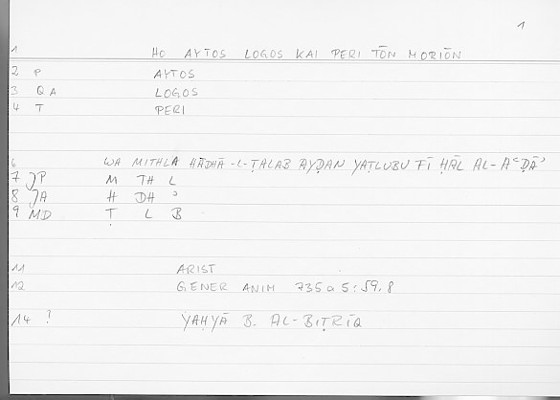 1
1 HO AYTOS LOGOS KAI PERI TŌN MORIŌN
2 P AYTOS
3 QA LOGOS
4 T PERI
6 WA MITHLA HĀDHĀ -L-ṬALAB AYḌAN YAṬLUBU FĪ ḤĀL AL-AʿḌĀʾ
7 JP M TH L
8 JA H DH ʾ
9 MD Ṭ L B
11 ARIST
12 GENER ANIM 735a5:59,8
14 ? YAḤYĀ B. AL-BIṬRĪQ